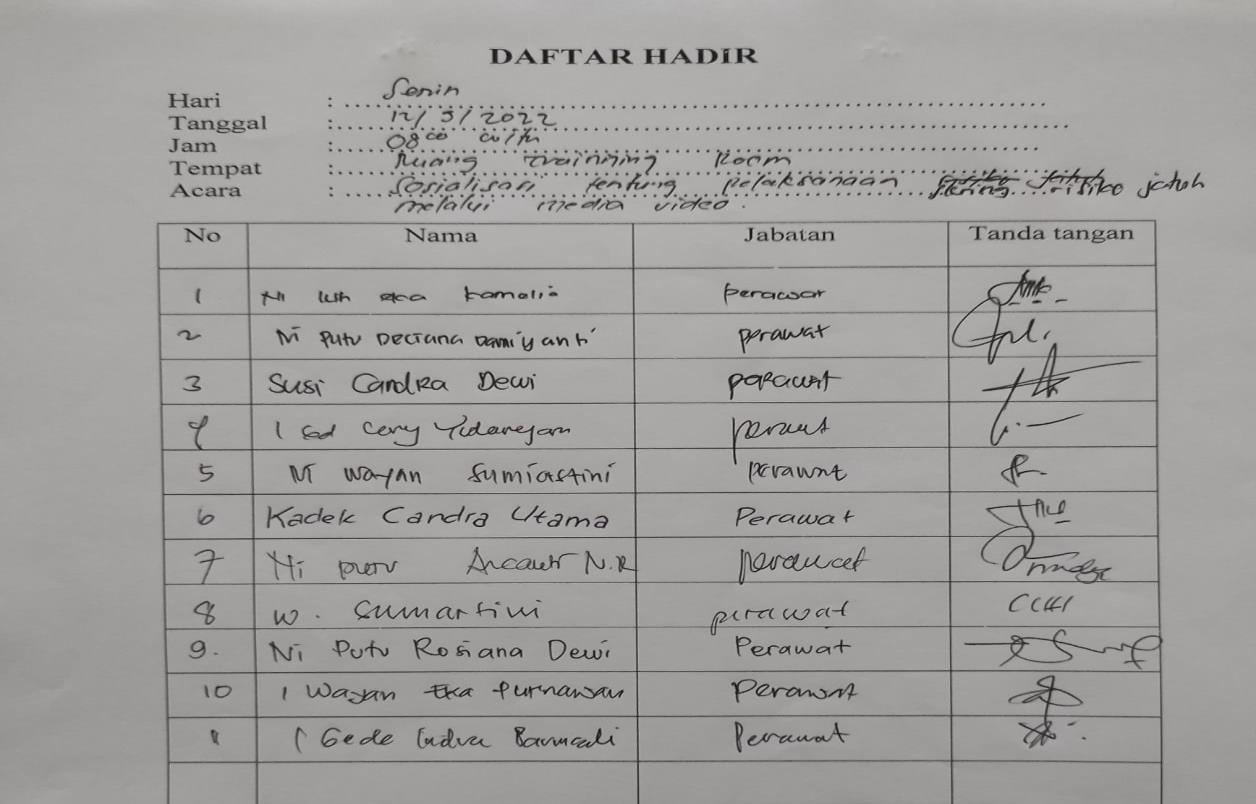 DAFTAR HADIR
Hari : Senin
Tanggal : 12/9/2022
Jam : 08⁰⁰ wita
Tempat : Ruang trainning Room
Acara : Sosialisasi tentang pelaksanaan risiko jatuh
melalui media video.
No Nama Jabatan Tanda tangan
1 Ni Luh eka Kamalia perawat
2 Ni Putu Deciana Damiyanti perawat
3 Susi Candra Dewi perawat
4 I perawat
5 Ni Wayan Sumiastini perawat
6 Kadek Candra Utama Perawat
7 Ni putu N.R perawat
8 W. Sumartini perawat
9. Ni Putu Rosiana Dewi Perawat
10 I Wayan Eka Purnawan Perawat
11 I Gede Indra Perawat